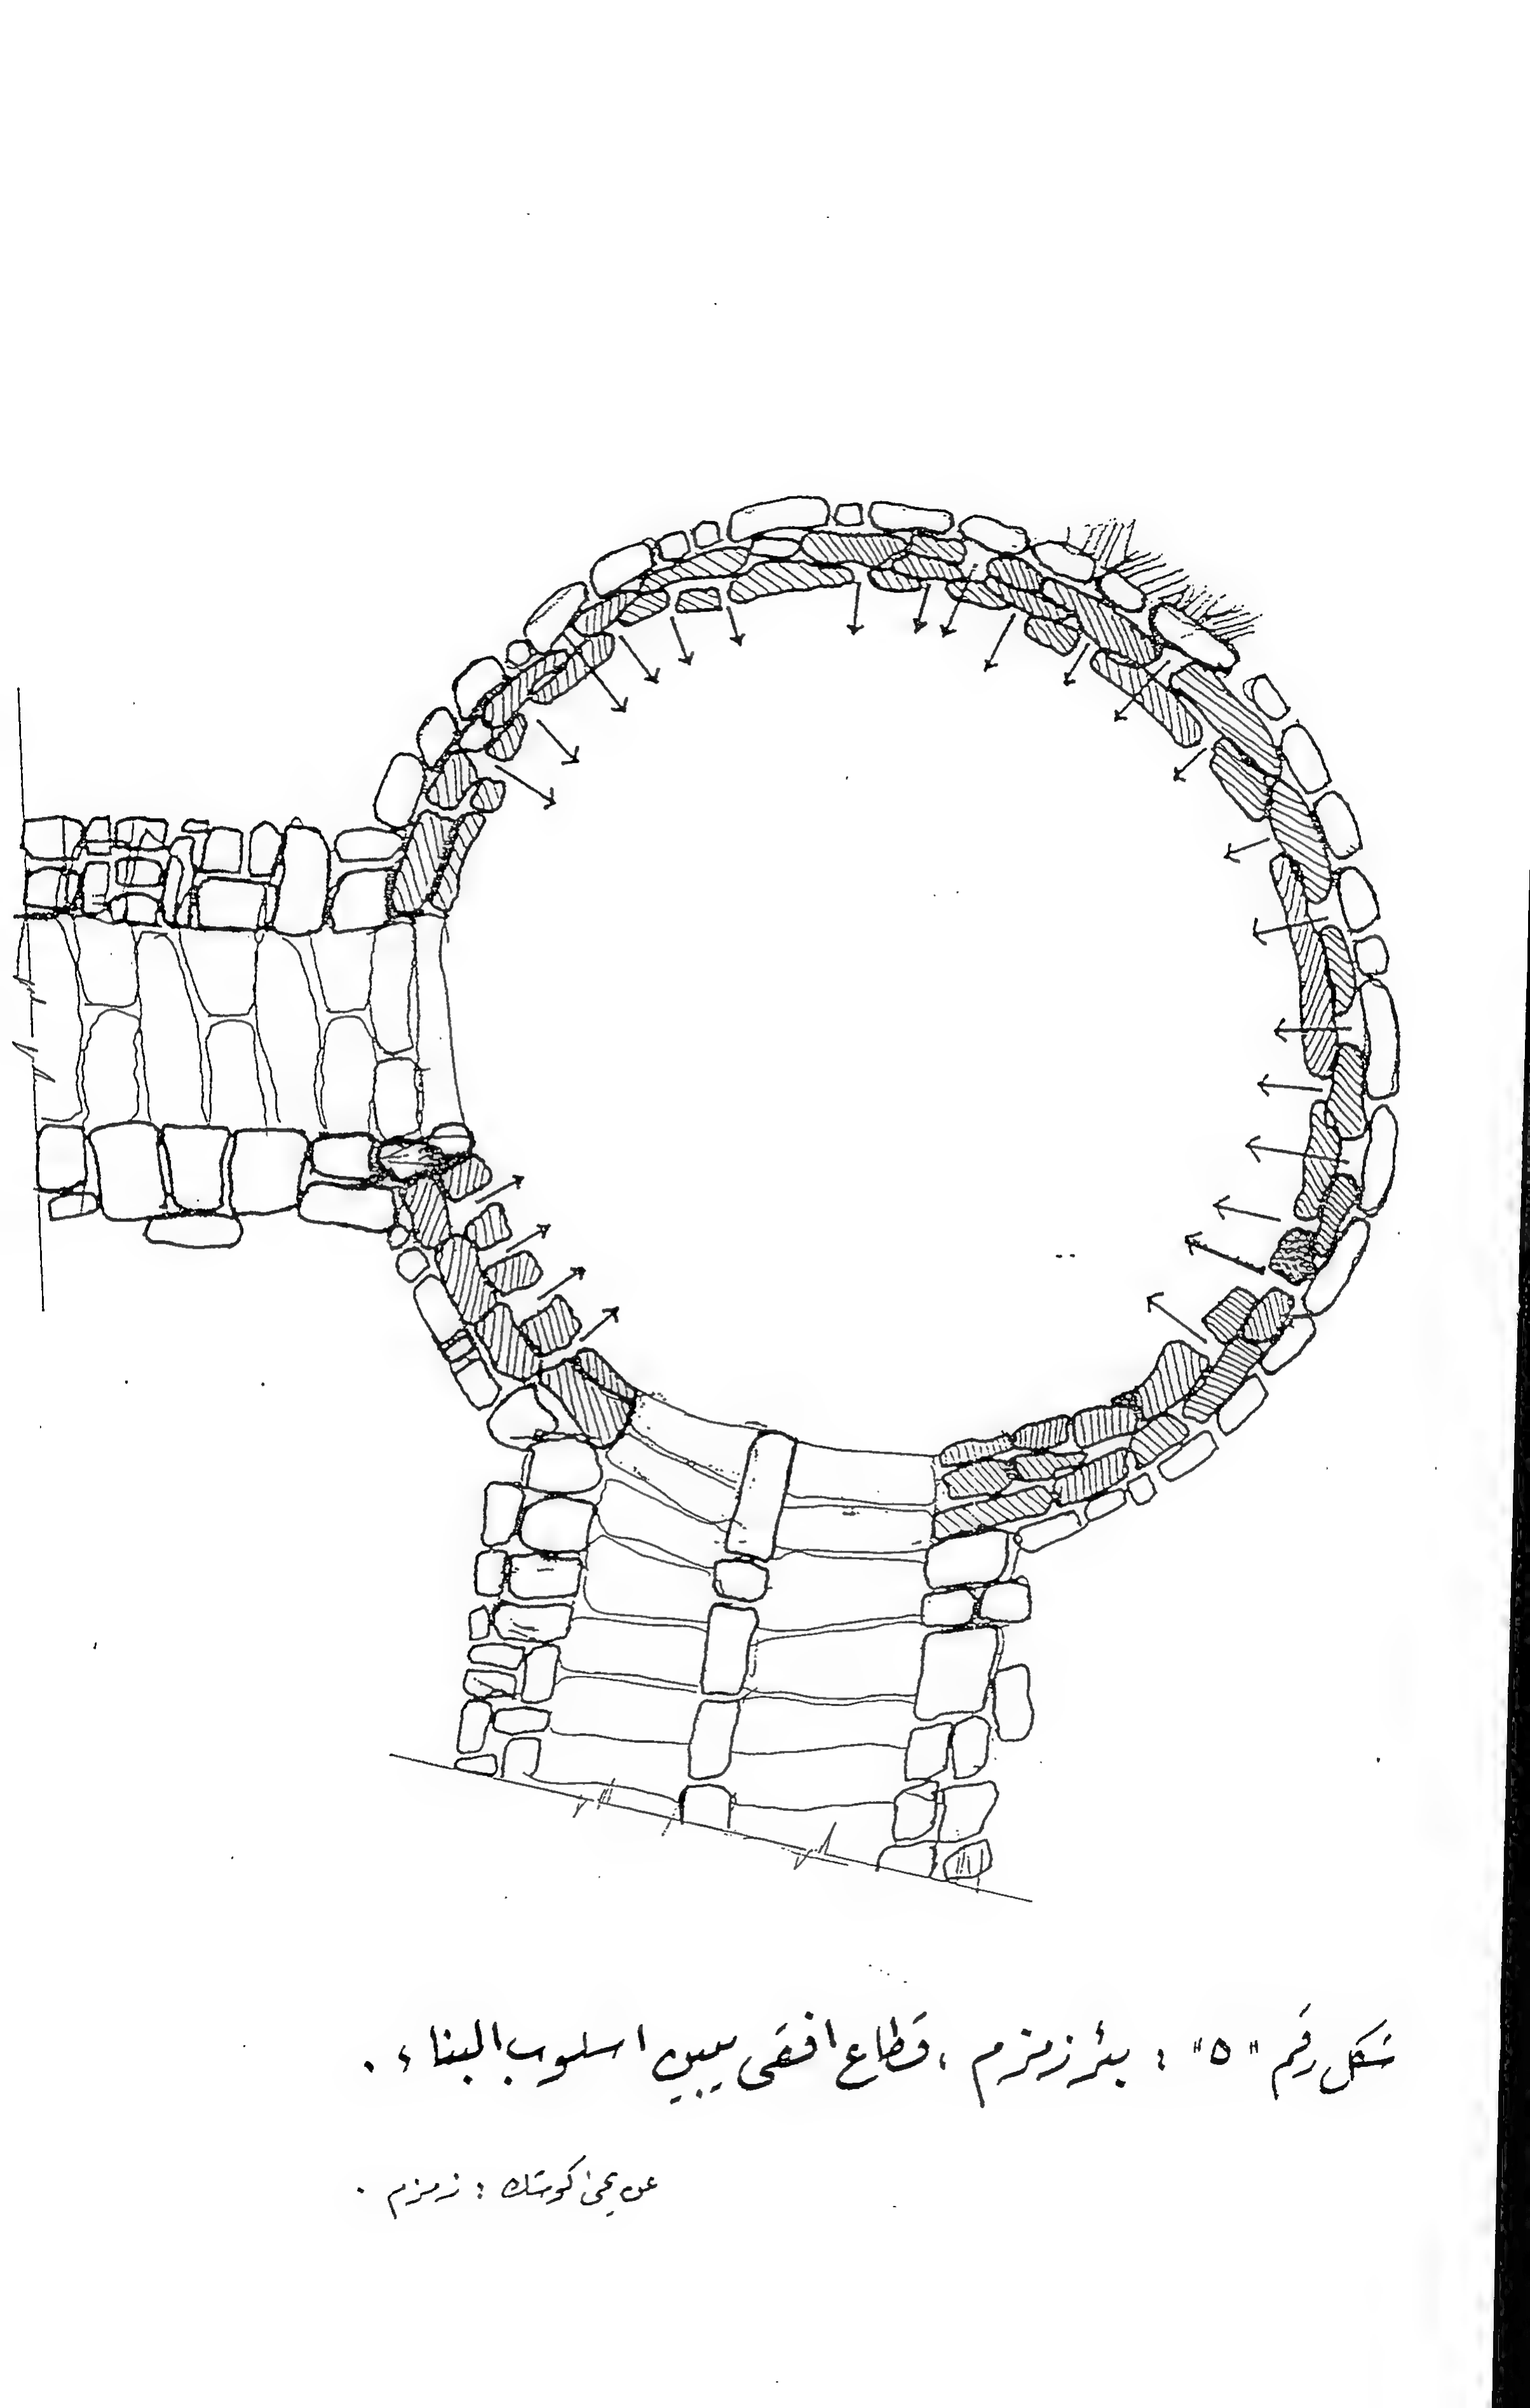 شكل رقم "٥" : بئر زمزم ، قطاع افقى يبين اسلوب البناء .
عن يحى كوشك : زمزم .